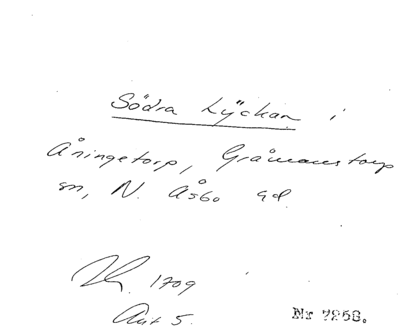 Södra Lyckan i
Åningetorp, Gråmanstorps
sn, N. Åsbo hd.
1709
Akt 5.
Nr 7258.